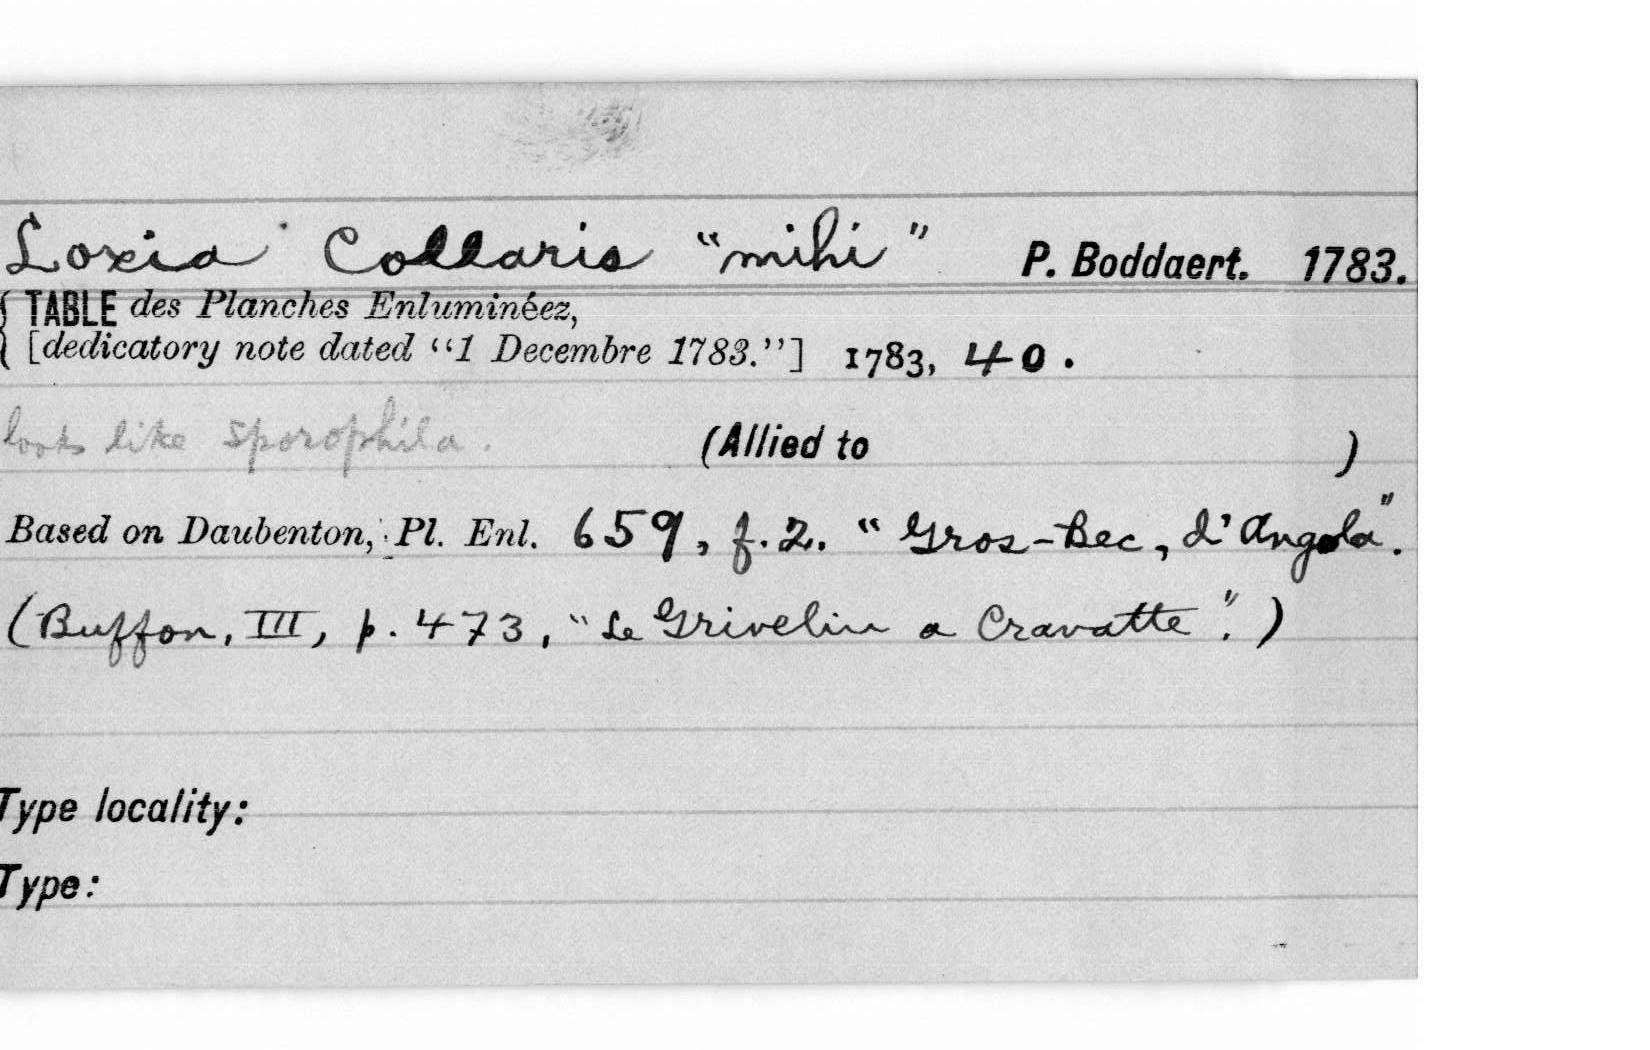 Loxia Collaris "mihi" P. Boddaert. 1783.
TABLE des Planches Enluminéez,
[dedicatory note dated "1 Decembre 1783."] 1783, 40.
looks like Sporophila. (Allied to )
Based on Daubenton, Pl. Enl. 659, f.2. "Gros-Bec, d'Angola".
(Buffon, III, p. 473, "Le Grivelin a Cravatte".)
Type locality:
Type: